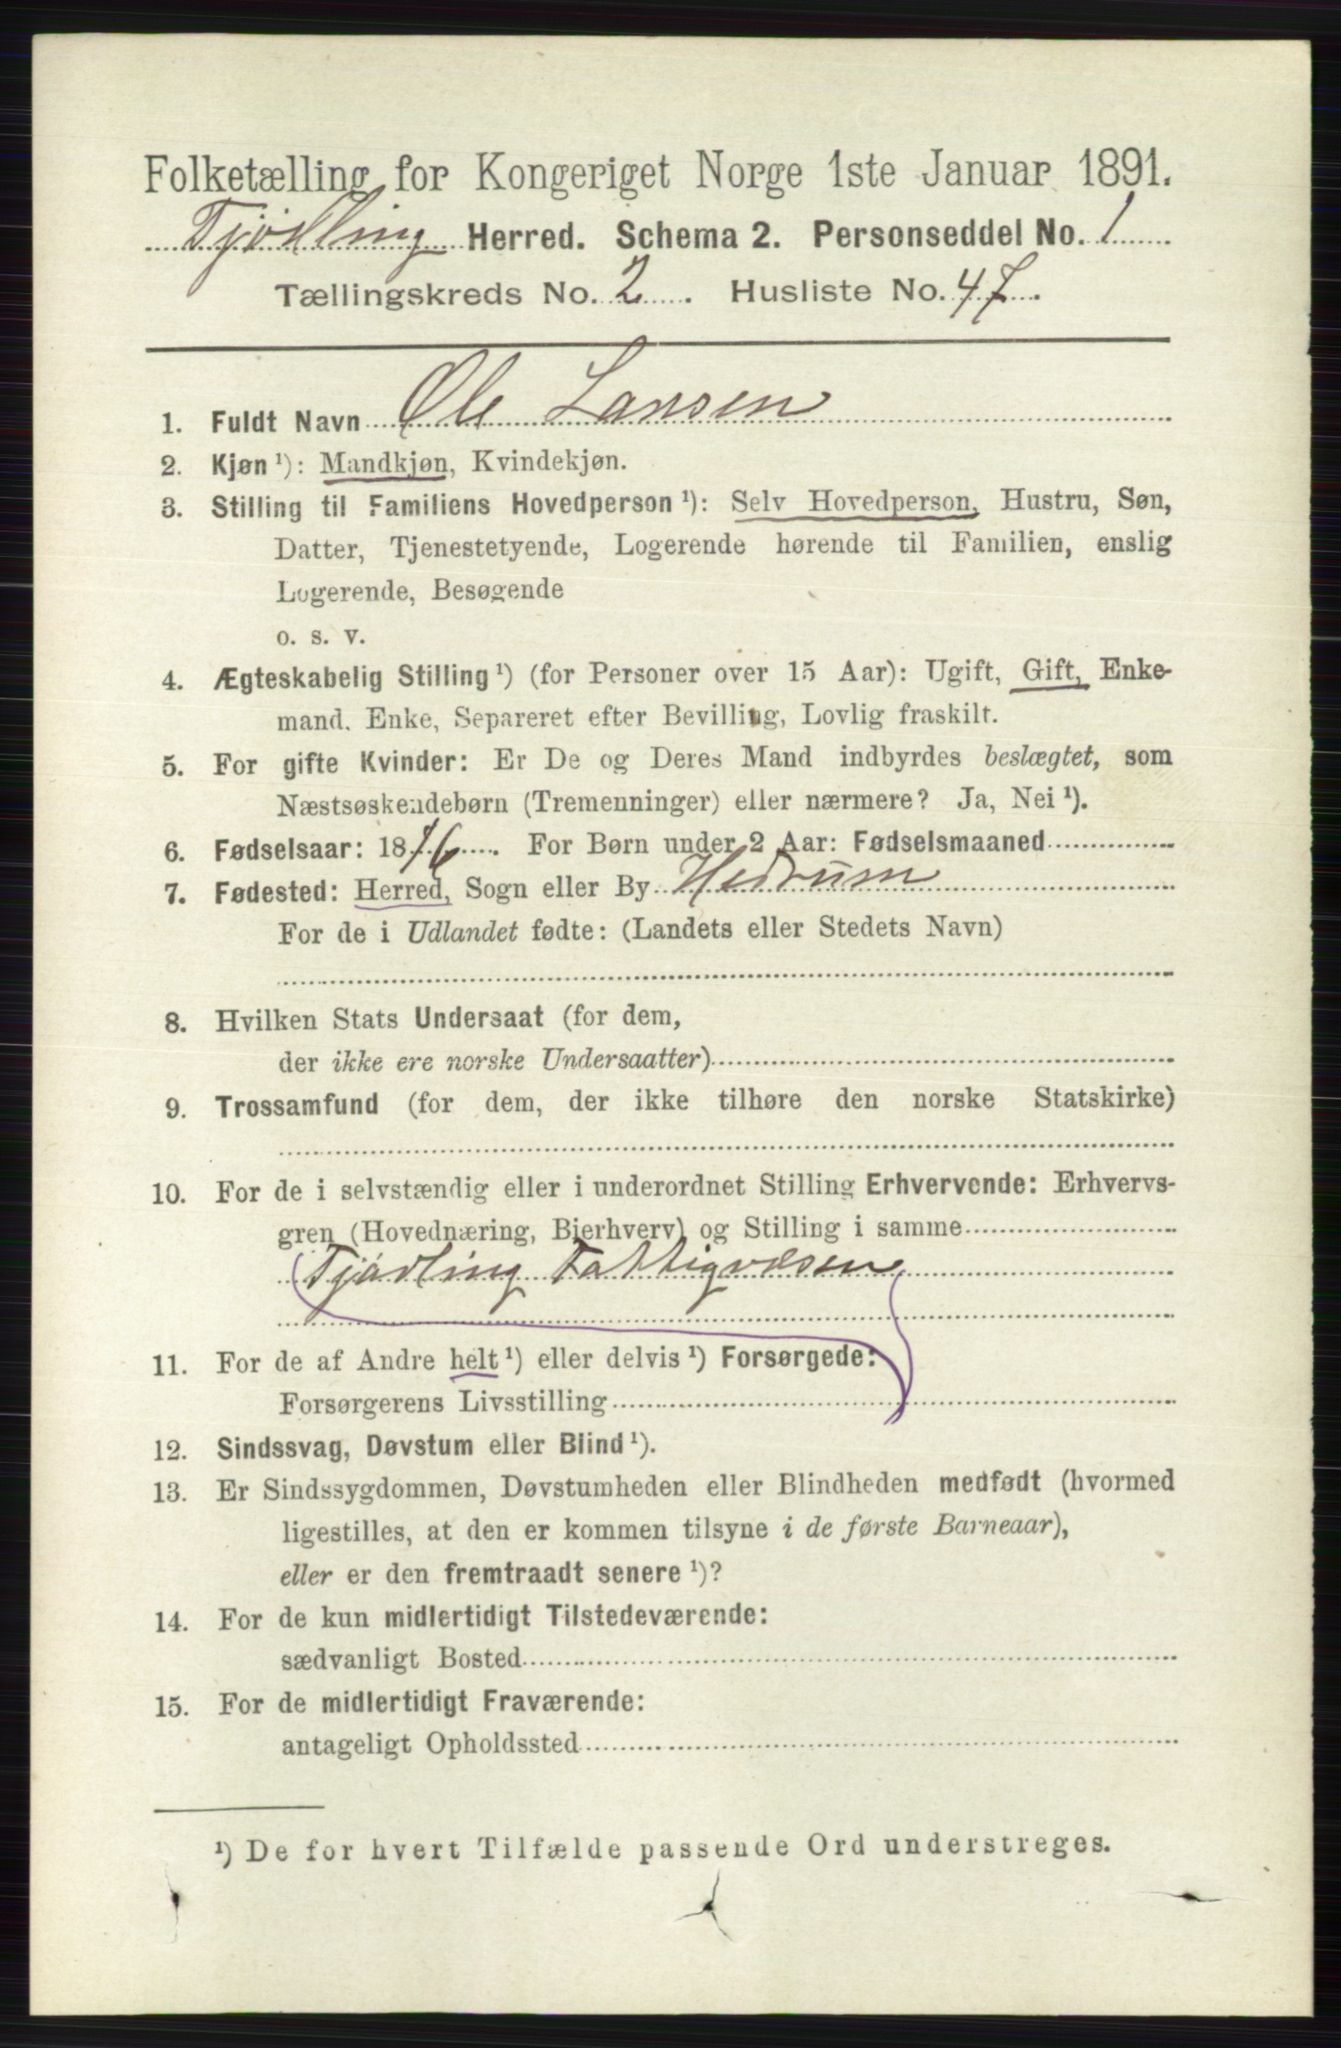 Folketælling for Kongeriget Norge 1ste Januar 1891.
Tjødling Herred. Schema 2. Personseddel No. 1
Tællingskreds No. 2. Husliste No. 47.
1. Fuldt Navn Ole Larsen
2. Kjøn ¹): Mandkjøn, Kvindekjøn.
3. Stilling til Familiens Hovedperson ¹): Selv Hovedperson, Hustru, Søn,
Datter, Tjenestetyende, Logerende hørende til Familien, enslig
Logerende, Besøgende
o. s. v.
4. Ægteskabelig Stilling ¹) (for Personer over 15 Aar): Ugift, Gift, Enke-
mand, Enke, Separeret efter Bevilling, Lovlig fraskilt.
5. For gifte Kvinder: Er De og Deres Mand indbyrdes beslægtet, som
Næstsøskendebørn (Tremenninger) eller nærmere? Ja, Nei ¹).
6. Fødselsaar: 1816. For Børn under 2 Aar: Fødselsmaaned
7. Fødested: Herred, Sogn eller By Hedrum
For de i Udlandet fødte: (Landets eller Stedets Navn)
8. Hvilken Stats Undersaat (for dem,
der ikke ere norske Undersaatter)
9. Trossamfund (for dem, der ikke tilhøre den norske Statskirke)
10. For de i selvstændig eller i underordnet Stilling Erhvervende: Erhvervs-
gren (Hovednæring, Bierhverv) og Stilling i samme
Tjødling Fattigvæsen
11. For de af Andre helt ¹) eller delvis ¹) Forsørgede:
Forsørgerens Livsstilling
12. Sindssvag, Døvstum eller Blind ¹).
13. Er Sindssygdommen, Døvstumheden eller Blindheden medfødt (hvormed
ligestilles, at den er kommen tilsyne i de første Barneaar),
eller er den fremtraadt senere ¹)?
14. For de kun midlertidigt Tilstedeværende:
sædvanligt Bosted
15. For de midlertidigt Fraværende:
antageligt Opholdssted
¹) De for hvert Tilfælde passende Ord understreges.